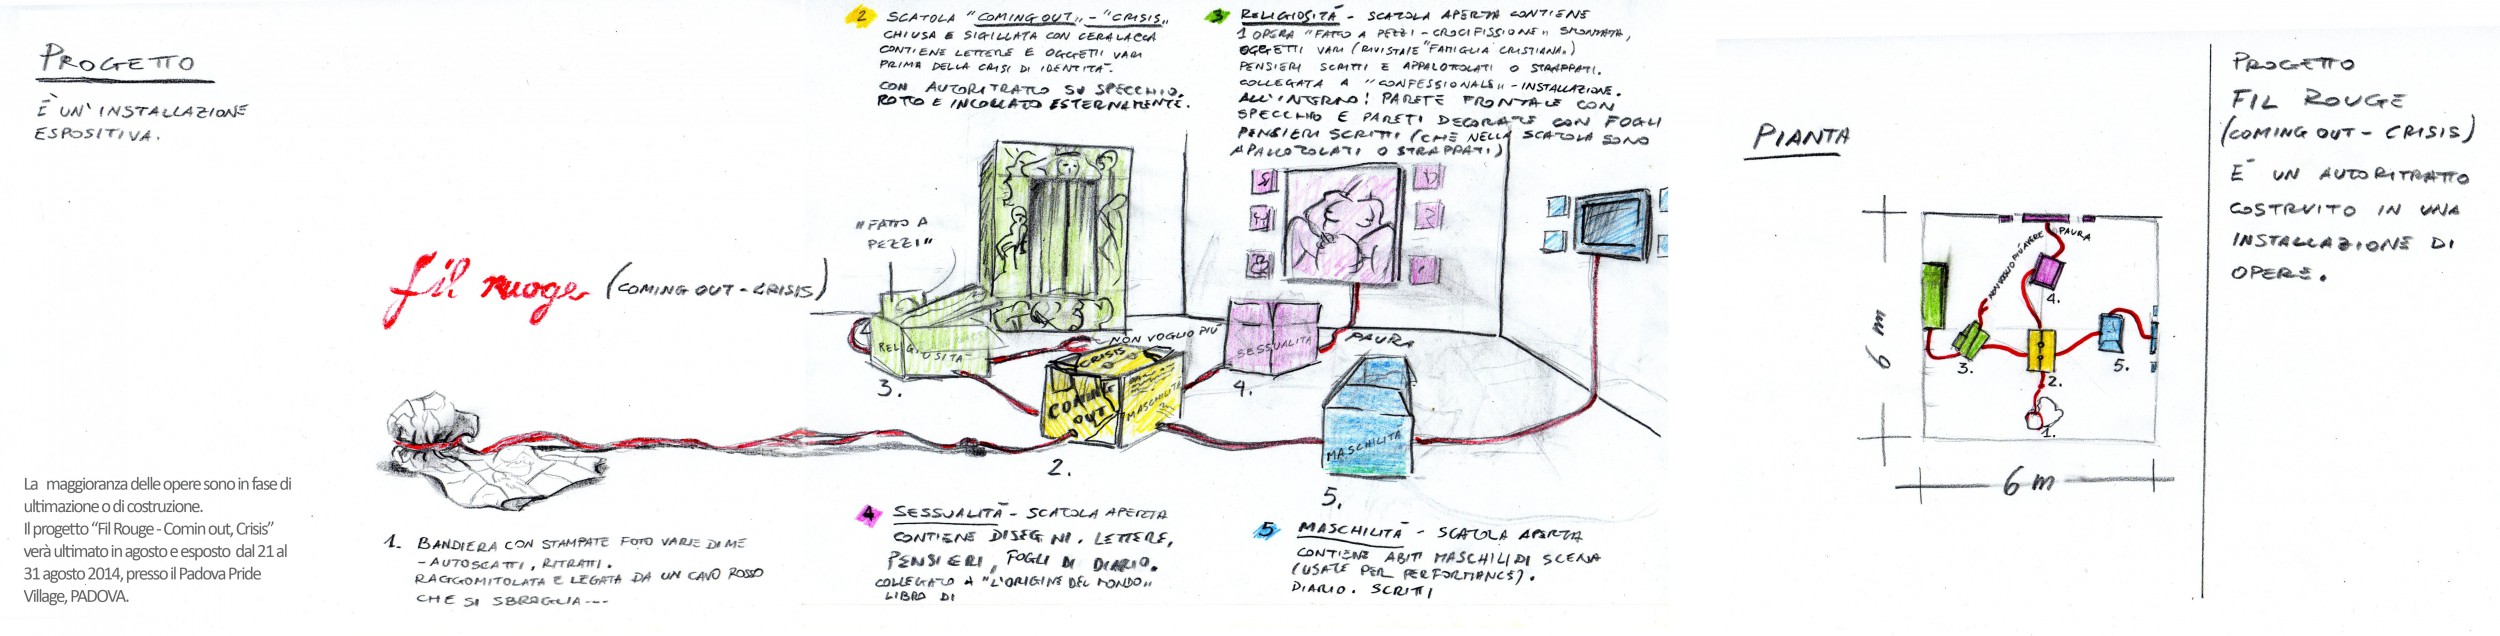 PROGETTO
È UN'INSTALLAZIONE
ESPOSITIVA.
La maggioranza delle opere sono in fase di
ultimazione o di costruzione.
Il progetto “Fil Rouge - Comin out, Crisis”
verà ultimato in agosto e esposto dal 21 al
31 agosto 2014, presso il Padova Pride
Village, PADOVA.
fil ruoge (COMING OUT - CRISIS)
1. BANDIERA CON STAMPATE FOTO VARIE DI ME
- AUTOSCATTI, RITRATTI.
RAGGOMITOLATA E LEGATA DA UN CAVO ROSSO
CHE SI SBROGLIA ----
2 SCATOLA "COMING OUT" - "CRISIS"
CHIUSA E SIGILLATA CON CERALACCA
CONTIENE LETTERE E OGGETTI VARI
PRIMA DELLA CRISI DI IDENTITA'.
CON AUTORITRATTO SU SPECCHIO.
ROTTO E INCOLLATO ESTERNAMENTE.
3 RELIGIOSITÀ - SCATOLA APERTA CONTIENE
1 OPERA "FATTO A PEZZI - CROCIFISSIONE" SMONTATA,
OGGETTI VARI (RIVISTA "FAMIGLIA CRISTIANA")
PENSIERI SCRITTI E APPALOTOLATI O STRAPPATI.
COLLEGATA A "CONFESSIONALE" - INSTALLAZIONE.
ALL'INTERNO: PARETE FRONTALE CON
SPECCHIO E PARETI DECORATE CON FOGLI
PENSIERI SCRITTI (CHE NELLA SCATOLA SONO
APALLOTOLATI O STRAPPATI)
"FATTO A
PEZZI"
RELIGIOSITÀ
3.
NON VOGLIO PIÙ
CRISIS
COMING
OUT
MASCHILITÀ
2.
SESSUALITÀ
4.
PAURA
MASCHILITÀ
5.
4 SESSUALITÀ - SCATOLA APERTA
CONTIENE DISEGNI. LETTERE,
PENSIERI, FOGLI DI DIARIO.
COLLEGATO A "L'ORIGINE DEL MONDO"
LIBRO DI
5 MASCHILITÀ - SCATOLA APERTA
CONTIENE ABITI MASCHILI DI SCENA
(USATE PER PERFORMANCE).
DIARIO. SCRITTI
PIANTA
NON VOGLIO PIÙ AVERE
PAURA
4.
3.
2.
5.
1.
6 m
6 m
PROGETTO
FIL ROUGE
(COMING OUT - CRISIS)
E' UN AUTORITRATTO
COSTRUITO IN UNA
INSTALLAZIONE DI
OPERE.